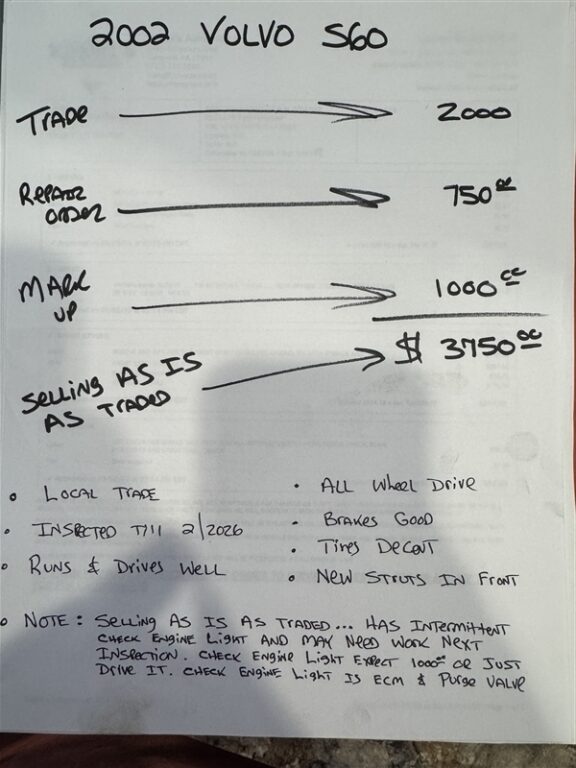 2002 VOLVO S60
TRADE 2000
REPAIR
ORDER 750 00
MARK
UP 1000 00
$ 3750 00
SELLING AS IS
AS TRADED
• LOCAL TRADE
• INSPECTED Till 2/2026
• RUNS & DRIVES WELL
• ALL WHEEL DRIVE
• BRAKES GOOD
• TIRES DECENT
• NEW STRUTS IN FRONT
• NOTE: SELLING AS IS AS TRADED... HAS INTERMITTENT
CHECK ENGINE LIGHT AND MAY NEED WORK NEXT
INSPECTION. CHECK ENGINE LIGHT EXPECT 1000 00 OR JUST
DRIVE IT. CHECK ENGINE LIGHT IS ECM & PURGE VALVE